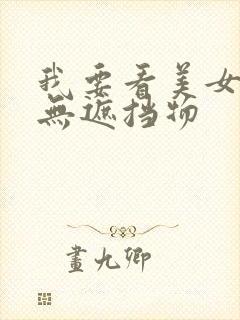 我要看美女
無遮挡物
畫九卿